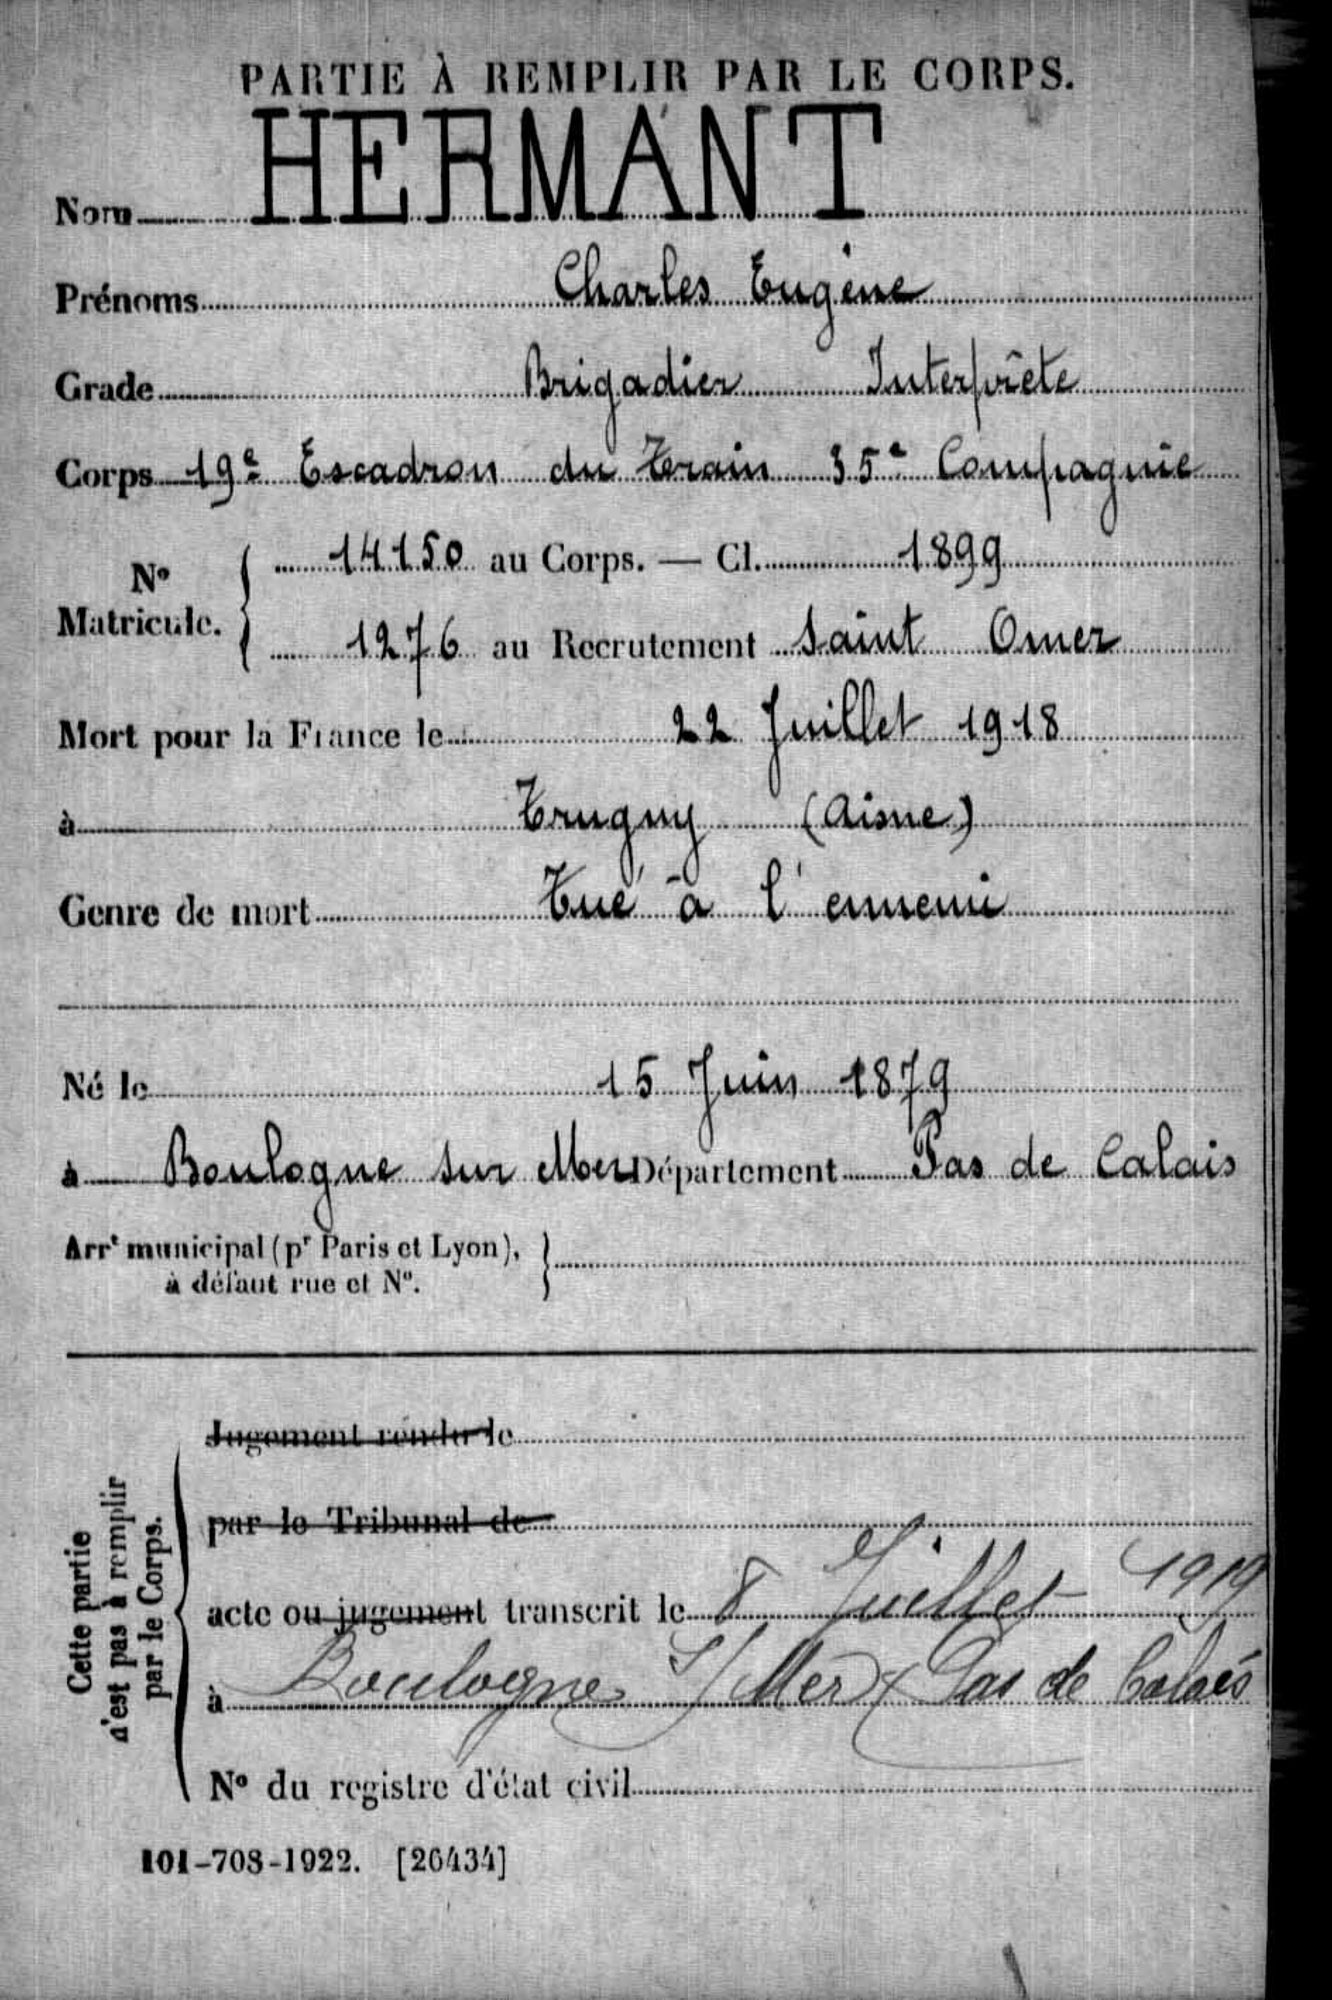 PARTIE À REMPLIR PAR LE CORPS.
Nom HERMANT
Prénoms Charles Eugène
Grade Brigadier Interprête
Corps 19e Escadron du Train 35e Compagnie
No Matricule. { 14150 au Corps. — Cl. 1899
1276 au Recrutement Saint Omer
Mort pour la France le 22 Juillet 1918
à Trugny (Aisne)
Genre de mort Tué à l'ennemi
Né le 15 Juin 1879
à Boulogne sur Mer Département Pas de Calais
Arrt municipal (pr Paris et Lyon), }
à défaut rue et No.
Cette partie
n'est pas à remplir
par le Corps.
Jugement rendu le
par le Tribunal de
acte ou jugement transcrit le 8 Juillet 1919
à Boulogne S/Mer (Pas de Calais
No du registre d'état civil
101-708-1922. [26434]